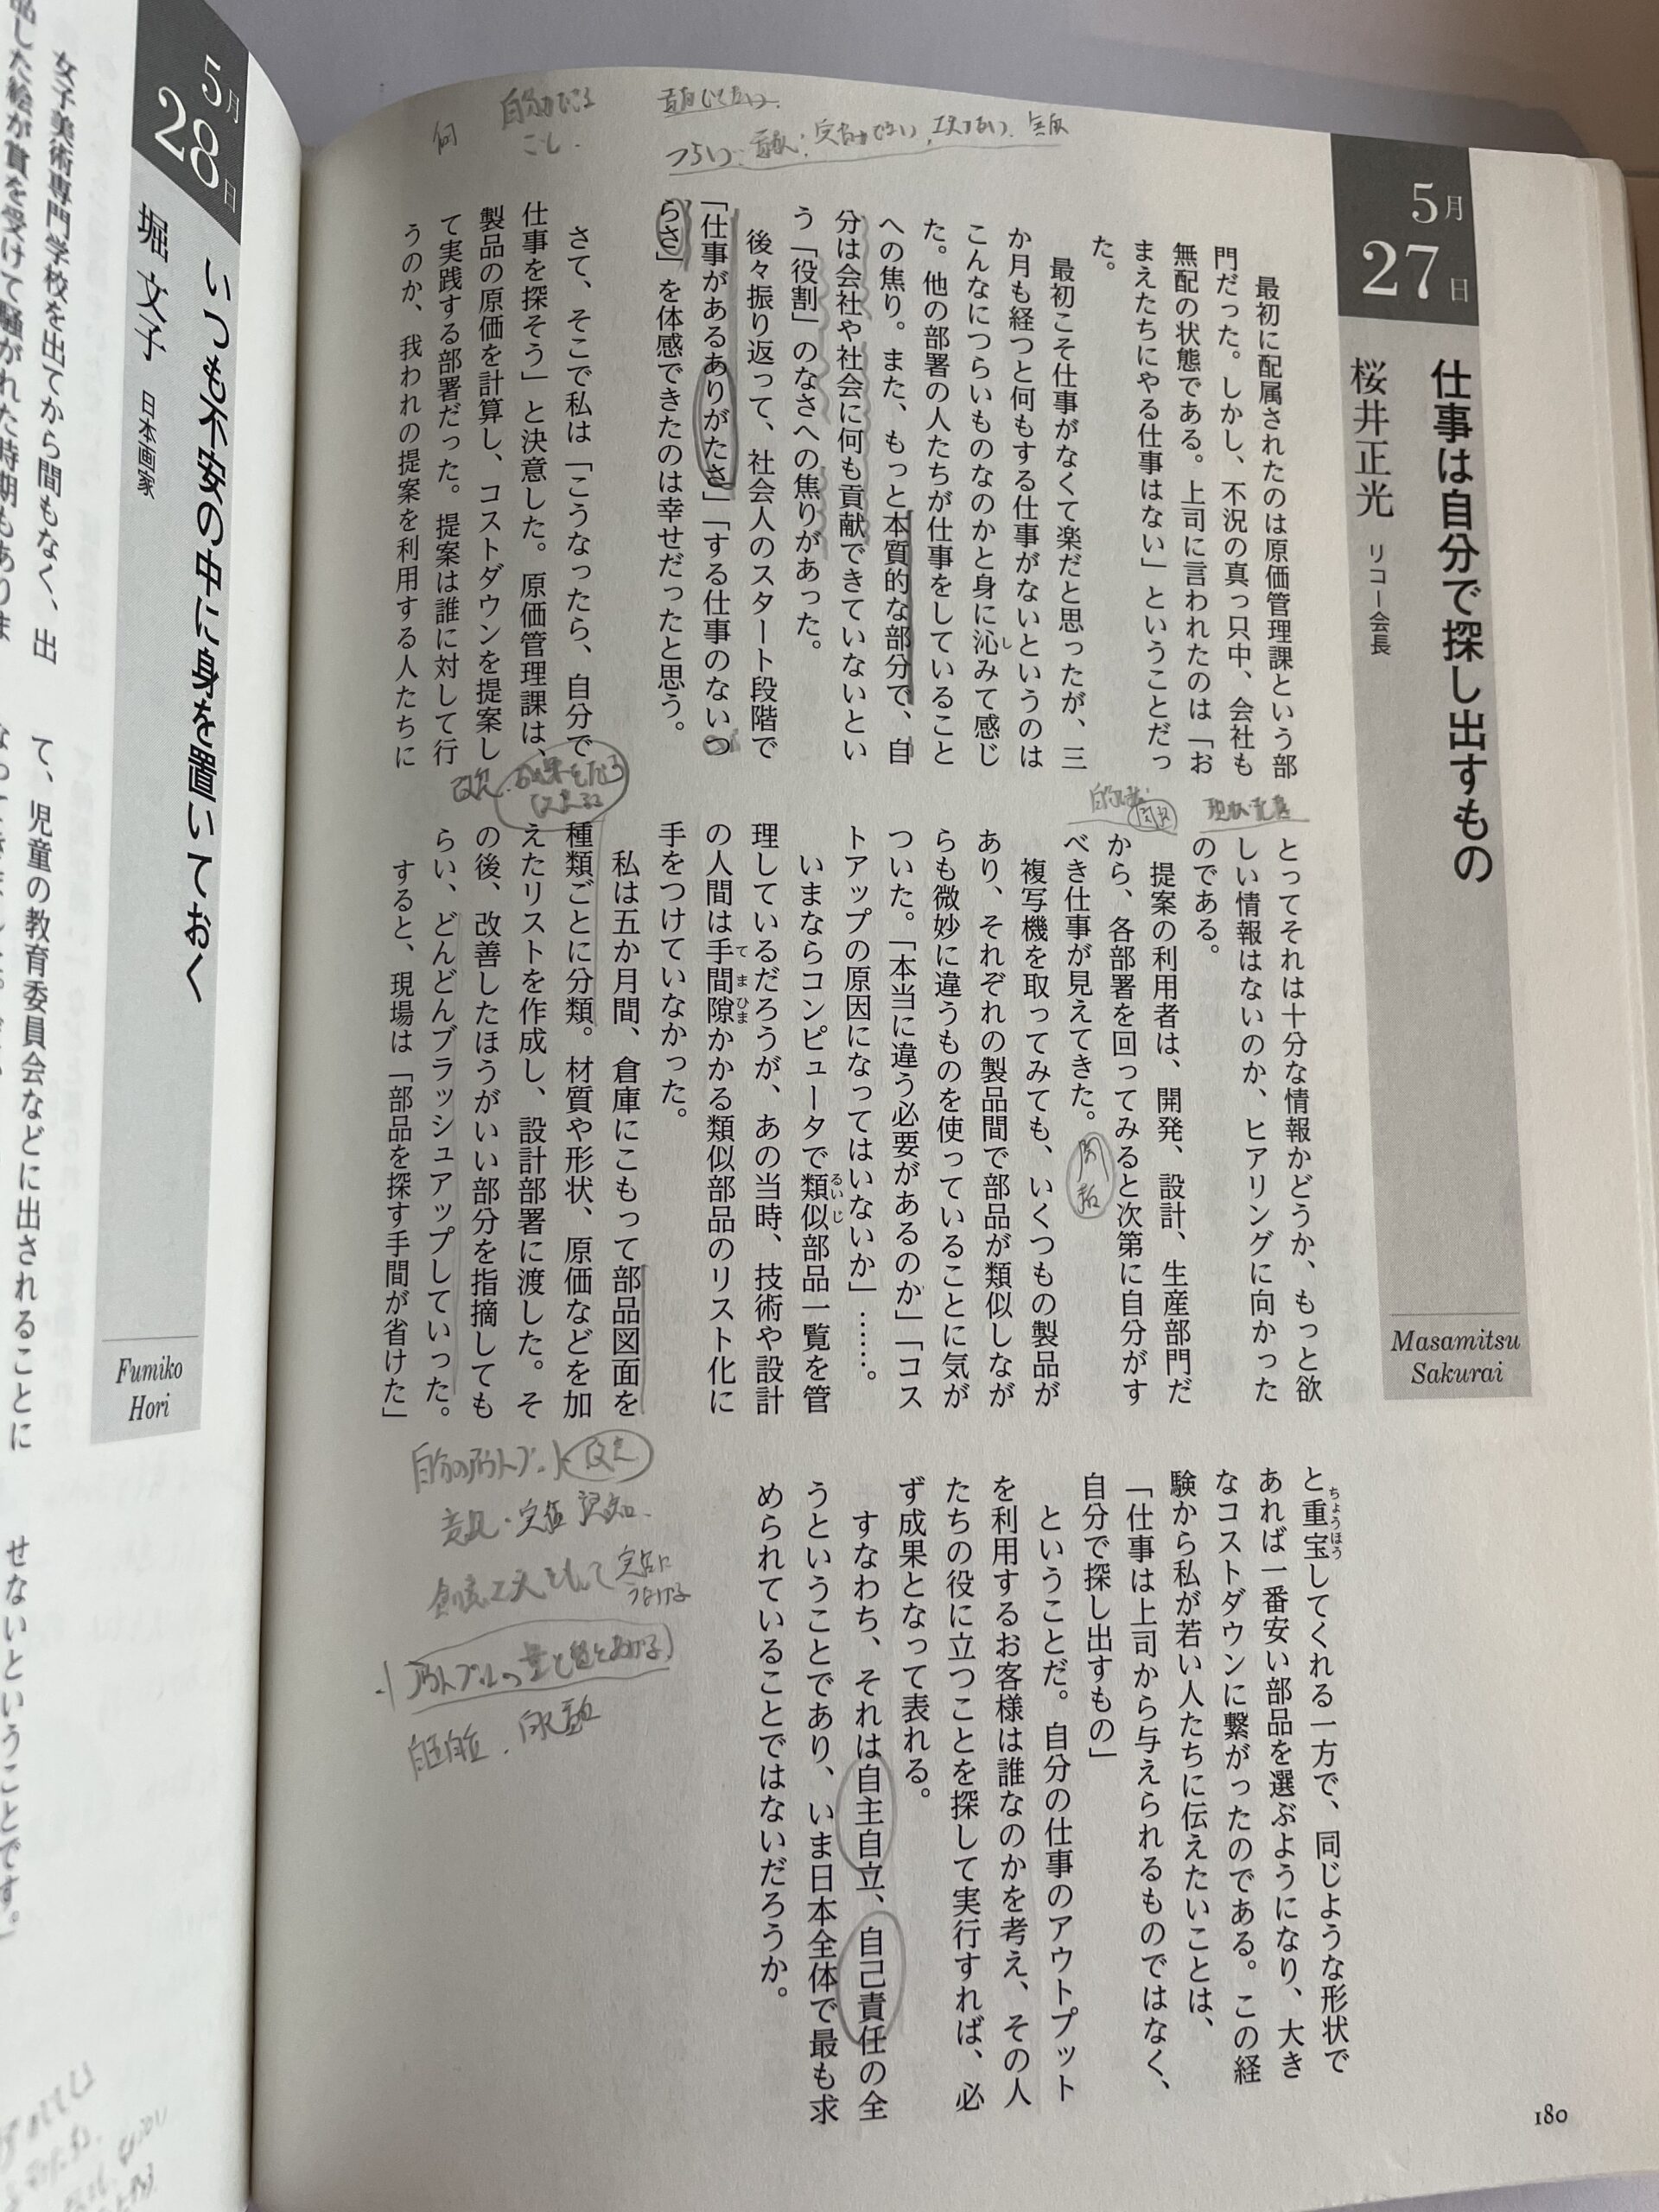 5月
27日
仕事は自分で探し出すもの
桜井正光 リコー会長
Masamitsu
Sakurai
最初に配属されたのは原価管理課という部
門だった。しかし、不況の真っ只中、会社も
無配の状態である。上司に言われたのは「お
まえたちにやる仕事はない」ということだっ
た。
最初こそ仕事がなくて楽だと思ったが、三
か月も経つと何もする仕事がないというのは
こんなにつらいものなのかと身に沁みて感じ
し
た。他の部署の人たちが仕事をしていること
への焦り。また、もっと本質的な部分で、自
分は会社や社会に何も貢献できていないとい
う「役割」のなさへの焦りがあった。
後々振り返って、社会人のスタート段階で
「仕事があるありがたさ」「する仕事のないつ
らさ」を体感できたのは幸せだったと思う。
さて、そこで私は「こうなったら、自分で
仕事を探そう」と決意した。原価管理課は、
製品の原価を計算し、コストダウンを提案し
て実践する部署だった。提案は誰に対して行
うのか、我われの提案を利用する人たちに
とってそれは十分な情報かどうか、もっと欲
しい情報はないのか、ヒアリングに向かった
のである。
提案の利用者は、開発、設計、生産部門だ
から、各部署を回ってみると次第に自分がす
べき仕事が見えてきた。
複写機を取ってみても、いくつもの製品が
あり、それぞれの製品間で部品が類似しなが
らも微妙に違うものを使っていることに気が
ついた。「本当に違う必要があるのか」「コス
トアップの原因になってはいないか」……。
いまならコンピュータで類似部品一覧を管
るいじ
理しているだろうが、あの当時、技術や設計
の人間は手間隙かかる類似部品のリスト化に
てまひま
手をつけていなかった。
私は五か月間、倉庫にこもって部品図面を
種類ごとに分類。材質や形状、原価などを加
えたリストを作成し、設計部署に渡した。そ
の後、改善したほうがいい部分を指摘しても
らい、どんどんブラッシュアップしていった。
すると、現場は「部品を探す手間が省けた」
と重宝してくれる一方で、同じような形状で
ちょうほう
あれば一番安い部品を選ぶようになり、大き
なコストダウンに繋がったのである。この経
験から私が若い人たちに伝えたいことは、
「仕事は上司から与えられるものではなく、
自分で探し出すもの」
ということだ。自分の仕事のアウトプット
を利用するお客様は誰なのかを考え、その人
たちの役に立つことを探して実行すれば、必
ず成果となって表れる。
すなわち、それは自主自立、自己責任の全
うということであり、いま日本全体で最も求
められていることではないだろうか。
180
自分ができる
こと.
何
5月
28日
いつも不安の中に身を置いておく
堀 文子 日本画家
Fumiko
Hori
女子美術専門学校を出てから間もなく、出
品した絵が賞を受けて騒がれた時期もありま
て、児童の教育委員会などに出されることに
せないということです。」